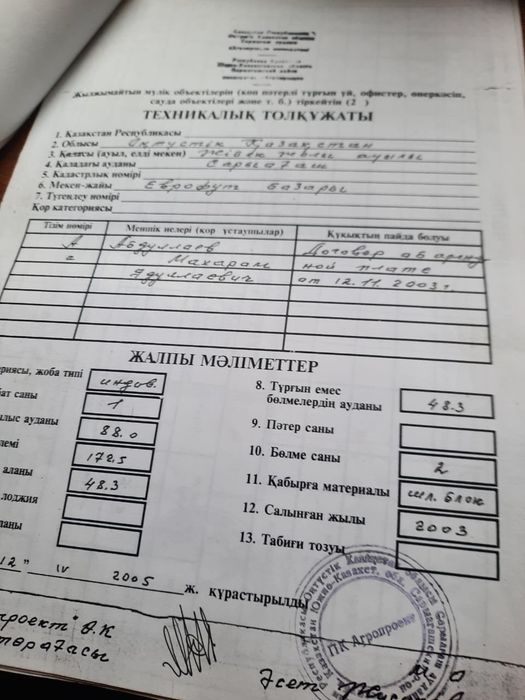 Жылжымайтын мүлік объектілерін (көп пәтерлі тұрғын үй, офистер, өнеркәсіп,
сауда объектілері және т. б.) тіркейтін (2 )
ТЕХНИКАЛЫҚ ТОЛҚҰЖАТЫ
1. Қазақстан Республикасы
2. Облысы Оңтүстік Қазақстан
3. Қаласы (ауыл, елді мекен) Жібек жолы ауылы
4. Қаладағы ауданы Сарыағаш
5. Кадастрлық нөмірі
6. Мекен-жайы Еврофут базары
7. Түгендеу нөмірі
Қор категориясы
Тізім нөмірі Меншік иелері (қор ұстаушылар) Құқықтың пайда болуы
Абдуллаев Договор об аренд
Махарам ной плате
Ядуллаевич от 12.11.2003 г.
ЖАЛПЫ МӘЛІМЕТТЕР
ориясы, жоба типі индов.
бат саны 1
лыс ауданы 88.0
лемі 172.5
аланы 48.3
лоджия
ланы
8. Тұрғын емес
бөлмелердің ауданы 48.3
9. Пәтер саны
10. Бөлме саны 2
11. Қабырға материалы шл. блок
12. Салынған жылы 2003
13. Табиғи тозуы
12 " IV 2005 ж. құрастырылды
проект" Ө.К
төрағасы
Әсет
ПК Агропроект